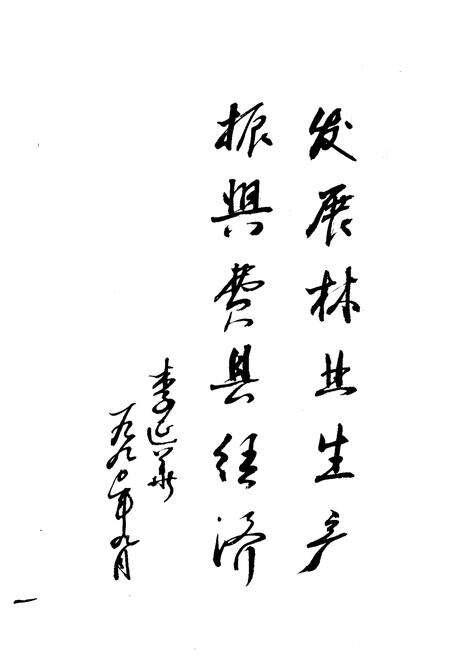 发展林业生产
振兴费县经济
李延华
一九九〇年九月